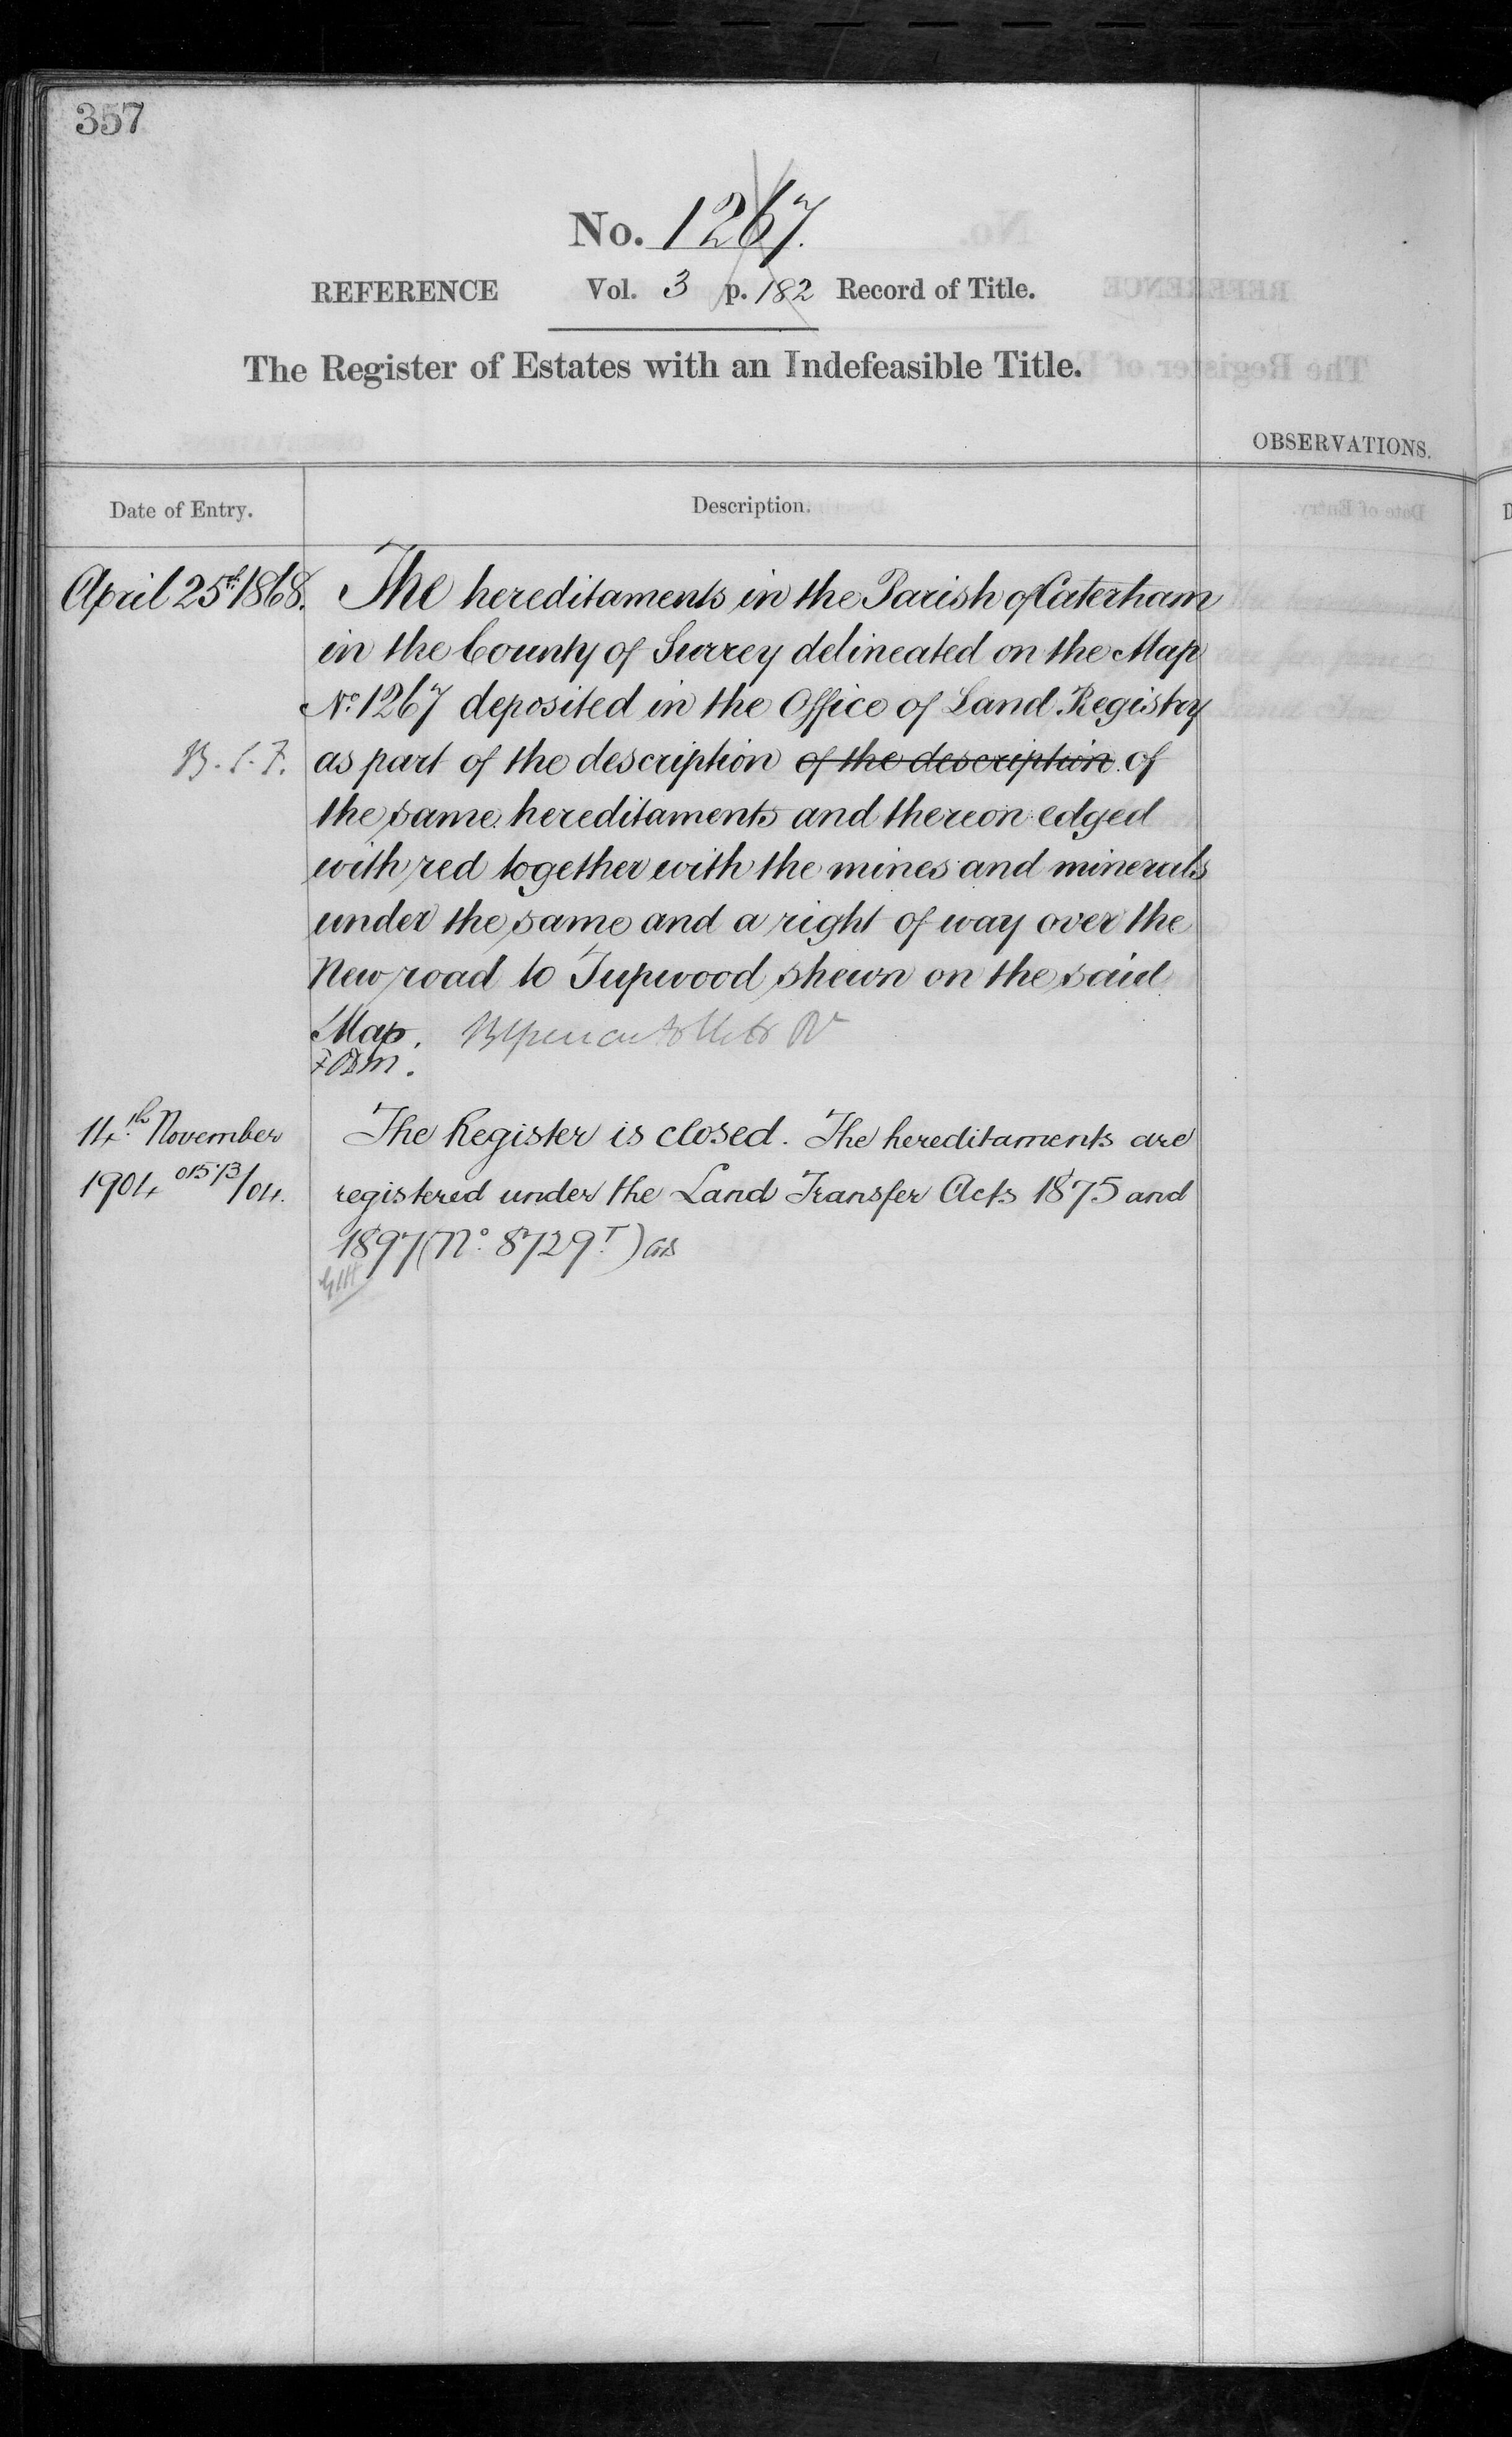 357
No. 1267.
REFERENCE Vol. 3 p. 182 Record of Title.
The Register of Estates with an Indefeasible Title.
OBSERVATIONS.
Date of Entry. Description.
April 25th 1868. The hereditaments in the Parish of Caterham
in the County of Surrey delineated on the Map
No. 1267 deposited in the Office of Land Registry
as part of the description of the description of
the same hereditaments and thereon edged
with red together with the mines and minerals
under the same and a right of way over the
New road to Tupwood shewn on the said
Map.
14th November The Register is closed. The hereditaments are
1904 01573/04. registered under the Land Transfer Acts 1875 and
1897 (No. 8729T)